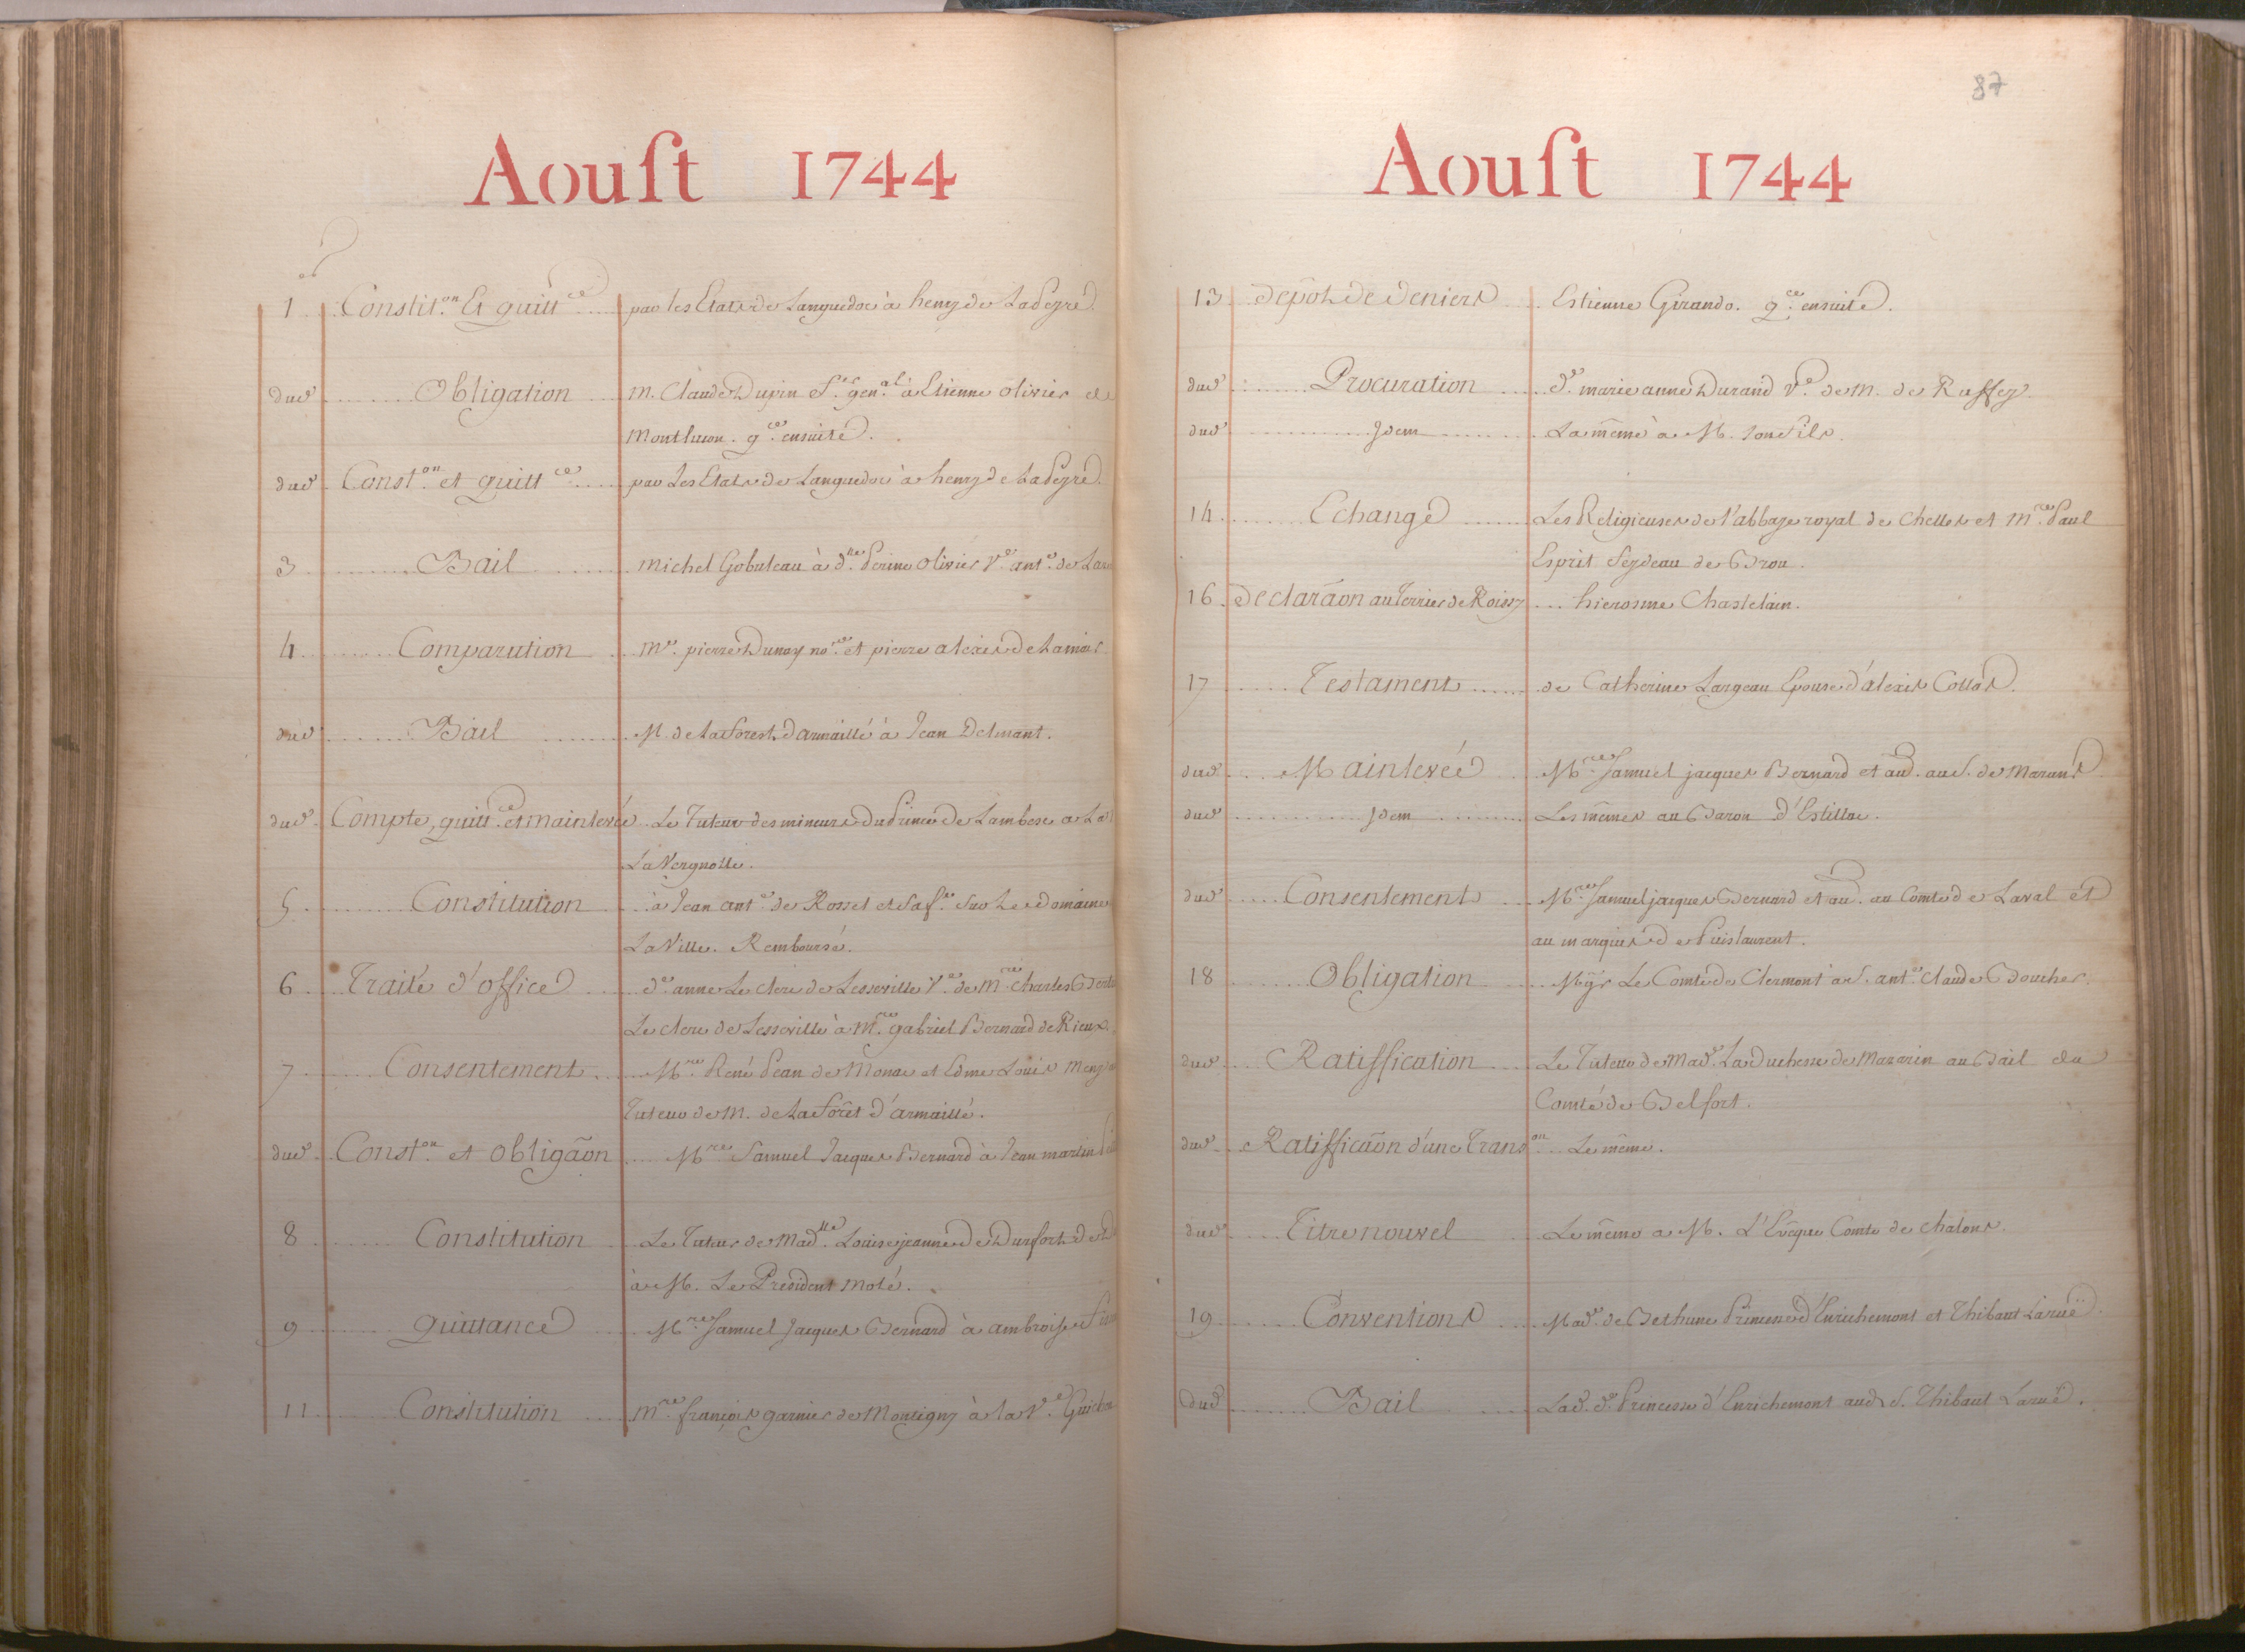 Aoust 1744
1 Constit.on Et quitt.ce par les Etats de Languedoc à henry de Lapeyre
dud. Obligation m. Claude Dupin f.er gen.al à Etienne Olivier de
Montluson. q.ce ensuite.
dud. Const.on et quitt.ce par Les Etats de Languedoc à henry de Lapeyre.
3 Bail michel Gobuteau à d.lle Perine Olivier V.e ant.e de
4 Comparution m.e pierre Dunoy no.re et pierre alexis Delamair
dud. Bail M. de Laforest d'armaillé à Jean Delmant.
dud. Compte, quitt.ce et mainlevée Le Tuteur des mineurs du Prince de Lambesc a
La Vergnolle.
5 Constitution à Jean ant.e de Rosset et sa f.e sur Le domaine
La Ville. Remboursé.
6 Traité d'office d.e anne Le clerc de Lesseville V.e de m.re charles
Le clerc de Lesseville à M.re gabriel Bernard de Rieux.
7 Consentement M.re René Pean de Monac et Edme Louis
Tuteur de M. de La forêt d'armaillé.
dud. Const.on et obligãon M.re Samuel Jacques Bernard à Jean martin
8 Constitution Le Tuteur de Mad.lle Louise jeanne de Durfort de
à M. Le President molé.
9 Quittance M.re Samuel Jacques Bernard à ambroise
11 Constitution m.re françois garnier de Montigny à la V.e
87
Aoust 1744
13 depôt de deniers Estienne Girando. q.ce ensuite.
dud. Procuration d.e marie anne Durand V.e de M. de Ruffey.
dud. Idem La même à M. son fils.
14 Echange Les Religieuses de l'abbaye royal de Chelles et M.re Paul
Esprit feydeau de Brou.
16 declarãon au Terrier de Roissy hierosme Chastelain.
17 Testament de Catherine Largeau Epouse d'alexis Collas.
dud. Mainlevée M.re Samuel jacques Bernard et au.d au S. de Marans
dud. Idem Les mêmes au Baron d'Estillac.
dud. Consentement M.re Samuel jacques Bernard et au. au Comte de Laval et
au marquis de Puislaurent.
18 Obligation Mgr Le Comte de Clermont à S. ant.e Claude Boucher.
dud. Ratiffication Le Tuteur de Mad.e La Duchesse de Mazarin au Bail du
Comté de Belfort.
dud. Ratifficãon d'une Trans.on Le même.
dud. Titre nouvel Le même a M. L'Evêque Comte de chalons.
19 Conventions Mad.e de Bethune Princesse d'Enrichemont et Thibaut Laruë.
Dud. Bail Lad. d.e Princesse d'Enrichemont aud. S. Thibaut Laruë.